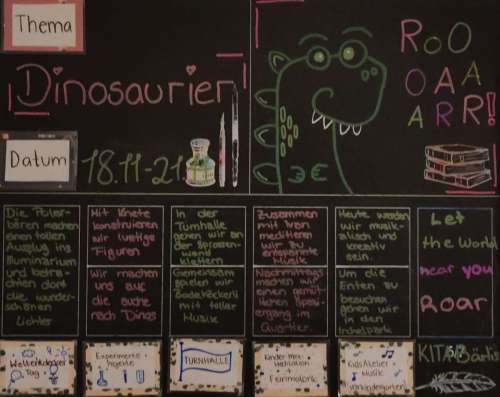 Thema
Dinosaurier
Datum
18.11-21.
RoO
OAA
ARR!
Die Polar-
bären machen
einen tollen
Ausflug ins
Illuminarium
und betra-
chten dort
die wunder-
schönen
Lichter
Mit Knete
konstruieren
wir lustige
Figuren
Wir machen
uns auf
die suche
nach Dinos
In der
Turnhalle
gehen wir an
der Sprossen-
wand
klettern
Gemeinsam
spielen wir
mit toller
Musik
Zusammen
mit Iran
meditieren
wir zu
entspannte
Musik
Nachmittags
machen wir
einen gemüt-
lichen Spazi-
ergang im
Quartier.
Heute werden
wir musik-
alisch und
kreativ
sein.
Um die
Enten zu
besuchen
gehen wir
in den
Irchelpark
Let
the World
hear you
Roar
Weltentdecker
Tag
Experimente
TURNHALLE
Kinder Med.
Meditation
+
KidsAtelier +
Musik
Waldkindergarten
KITABärli